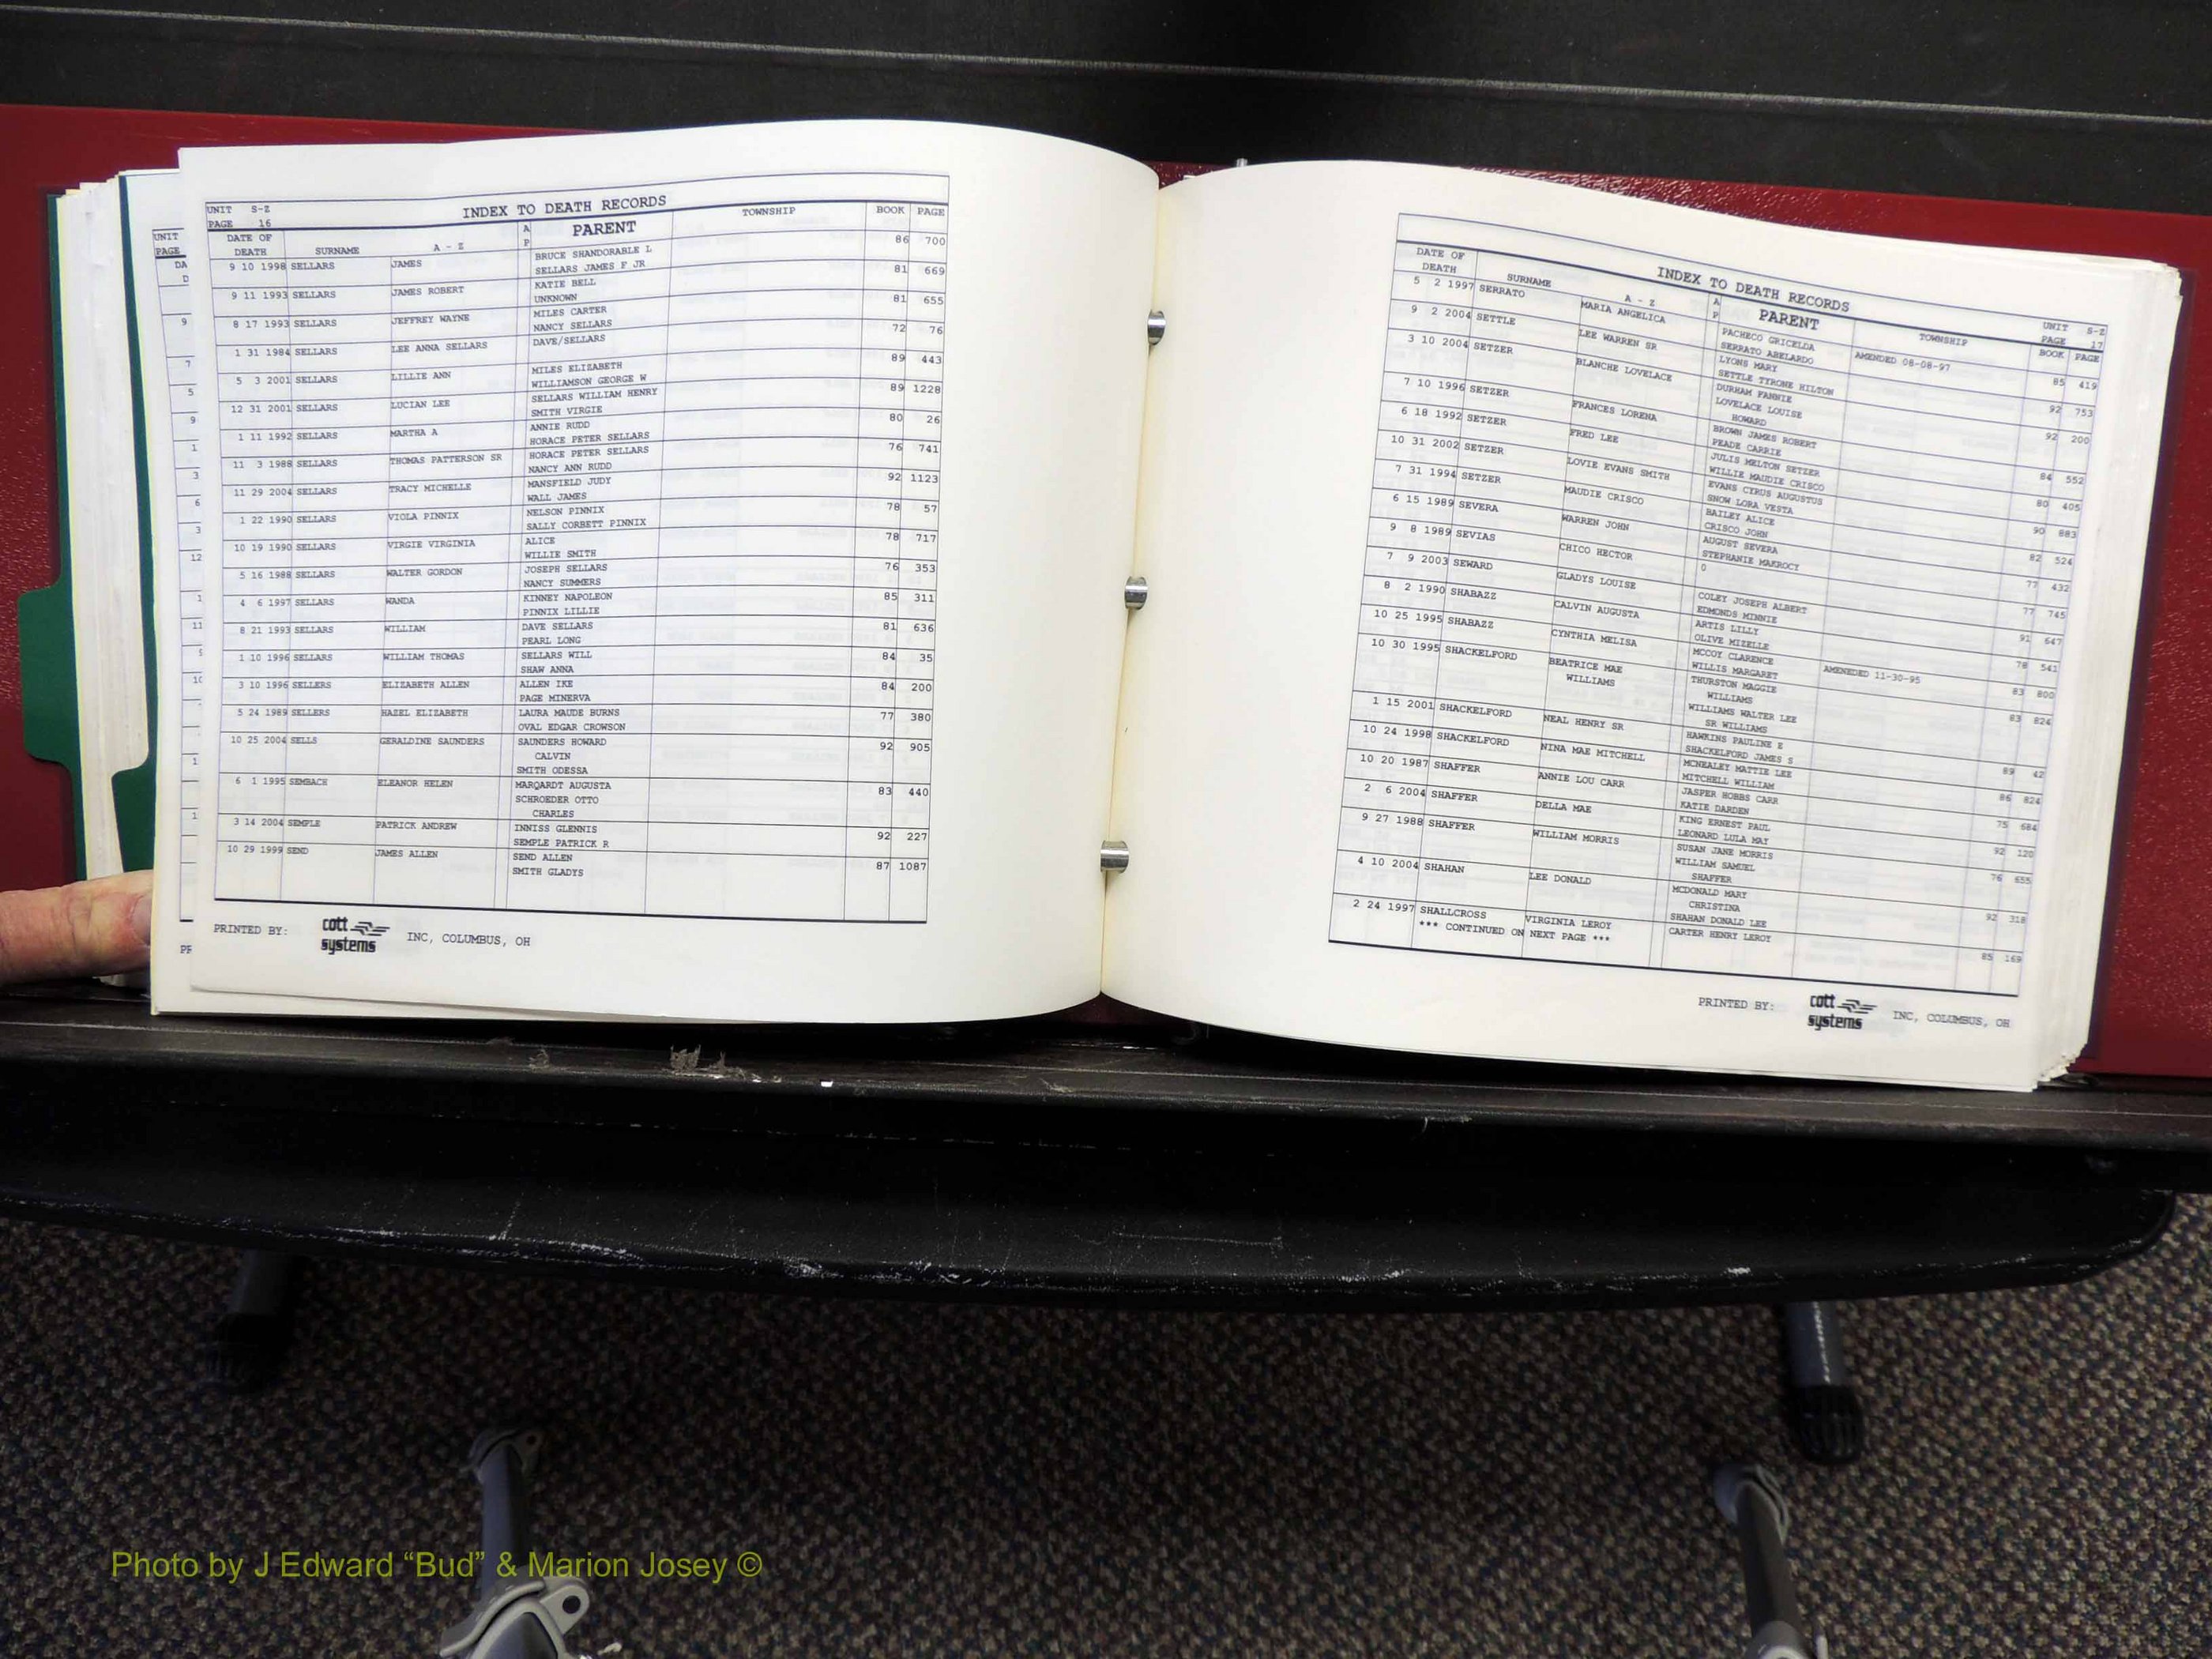 UNIT S-Z
PAGE 16
INDEX TO DEATH RECORDS
DATE OF DEATH SURNAME A - Z A P PARENT TOWNSHIP BOOK PAGE
9 10 1998 SELLARS JAMES BRUCE SHANDORABLE L 86 700
SELLARS JAMES F JR
9 11 1993 SELLARS JAMES ROBERT KATIE BELL 81 669
UNKNOWN
8 17 1993 SELLARS JEFFREY WAYNE MILES CARTER 81 655
NANCY SELLARS
1 31 1984 SELLARS LEE ANNA SELLARS DAVE/SELLARS 72 76
5 3 2001 SELLARS LILLIE ANN MILES ELIZABETH 89 443
WILLIAMSON GEORGE W
12 31 2001 SELLARS LUCIAN LEE SELLARS WILLIAM HENRY 89 1228
SMITH VIRGIE
1 11 1992 SELLARS MARTHA A ANNIE RUDD 80 26
HORACE PETER SELLARS
11 3 1988 SELLARS THOMAS PATTERSON SR HORACE PETER SELLARS 76 741
NANCY ANN RUDD
11 29 2004 SELLARS TRACY MICHELLE MANSFIELD JUDY 92 1123
WALL JAMES
1 22 1990 SELLARS VIOLA PINNIX NELSON PINNIX 78 57
SALLY CORBETT PINNIX
10 19 1990 SELLARS VIRGIE VIRGINIA ALICE 78 717
WILLIE SMITH
5 16 1988 SELLARS WALTER GORDON JOSEPH SELLARS 76 353
NANCY SUMMERS
4 6 1997 SELLARS WANDA KINNEY NAPOLEON 85 311
PINNIX LILLIE
8 21 1993 SELLARS WILLIAM DAVE SELLARS 81 636
PEARL LONG
1 10 1996 SELLARS WILLIAM THOMAS SELLARS WILL 84 35
SHAW ANNA
3 10 1996 SELLERS ELIZABETH ALLEN ALLEN IKE 84 200
PAGE MINERVA
5 24 1989 SELLERS HAZEL ELIZABETH LAURA MAUDE BURNS 77 380
OVAL EDGAR CROWSON
10 25 2004 SELLS GERALDINE SAUNDERS SAUNDERS HOWARD 92 905
CALVIN
SMITH ODESSA
6 1 1995 SEMBACH ELEANOR HELEN MARQARDT AUGUSTA 83 440
SCHROEDER OTTO
CHARLES
3 14 2004 SEMPLE PATRICK ANDREW INNISS GLENNIS 92 227
SEMPLE PATRICK R
10 29 1999 SEND JAMES ALLEN SEND ALLEN 87 1087
SMITH GLADYS
PRINTED BY: cott systems INC, COLUMBUS, OH
INDEX TO DEATH RECORDS
UNIT S-Z
PAGE 17
DATE OF DEATH SURNAME A - Z A P PARENT TOWNSHIP BOOK PAGE
5 2 1997 SERRATO MARIA ANGELICA PACHECO GRICELDA AMENDED 08-08-97 85 419
SERRATO ABELARDO
9 2 2004 SETTLE LEE WARREN SR LYONS MARY 92 753
SETTLE TYRONE HILTON
3 10 2004 SETZER BLANCHE LOVELACE DURHAM FANNIE 92 200
LOVELACE LOUISE
HOWARD
7 10 1996 SETZER FRANCES LORENA BROWN JAMES ROBERT 84 552
PEADE CARRIE
6 18 1992 SETZER FRED LEE JULIS MELTON SETZER 80 405
WILLIE MAUDIE CRISCO
10 31 2002 SETZER LOVIE EVANS SMITH EVANS CYRUS AUGUSTUS 90 883
SNOW LORA VESTA
7 31 1994 SETZER MAUDIE CRISCO BAILEY ALICE 82 524
CRISCO JOHN
6 15 1989 SEVERA WARREN JOHN AUGUST SEVERA 77 432
STEPHANIE MAKROCY
9 8 1989 SEVIAS CHICO HECTOR 0 77 745
7 9 2003 SEWARD GLADYS LOUISE COLEY JOSEPH ALBERT 91 647
EDMONDS MINNIE
8 2 1990 SHABAZZ CALVIN AUGUSTA ARTIS LILLY 78 541
OLIVE MIZELLE
10 25 1995 SHABAZZ CYNTHIA MELISA MCCOY CLARENCE AMENEDED 11-30-95 83 800
WILLIS MARGARET
10 30 1995 SHACKELFORD BEATRICE MAE THURSTON MAGGIE 83 824
WILLIAMS WILLIAMS
WILLIAMS WALTER LEE
SR WILLIAMS
1 15 2001 SHACKELFORD NEAL HENRY SR HAWKINS PAULINE E 89 42
SHACKELFORD JAMES S
10 24 1998 SHACKELFORD NINA MAE MITCHELL MCNEALEY MATTIE LEE 86 824
MITCHELL WILLIAM
10 20 1987 SHAFFER ANNIE LOU CARR JASPER HOBBS CARR 75 684
KATIE DARDEN
2 6 2004 SHAFFER DELLA MAE KING ERNEST PAUL 92 120
LEONARD LULA MAY
9 27 1988 SHAFFER WILLIAM MORRIS SUSAN JANE MORRIS 76 655
WILLIAM SAMUEL
SHAFFER
4 10 2004 SHAHAN LEE DONALD MCDONALD MARY 92 318
CHRISTINA
SHAHAN DONALD LEE
2 24 1997 SHALLCROSS VIRGINIA LEROY CARTER HENRY LEROY 85 169
*** CONTINUED ON NEXT PAGE ***
PRINTED BY: cott systems INC, COLUMBUS, OH
Photo by J Edward “Bud” & Marion Josey ©